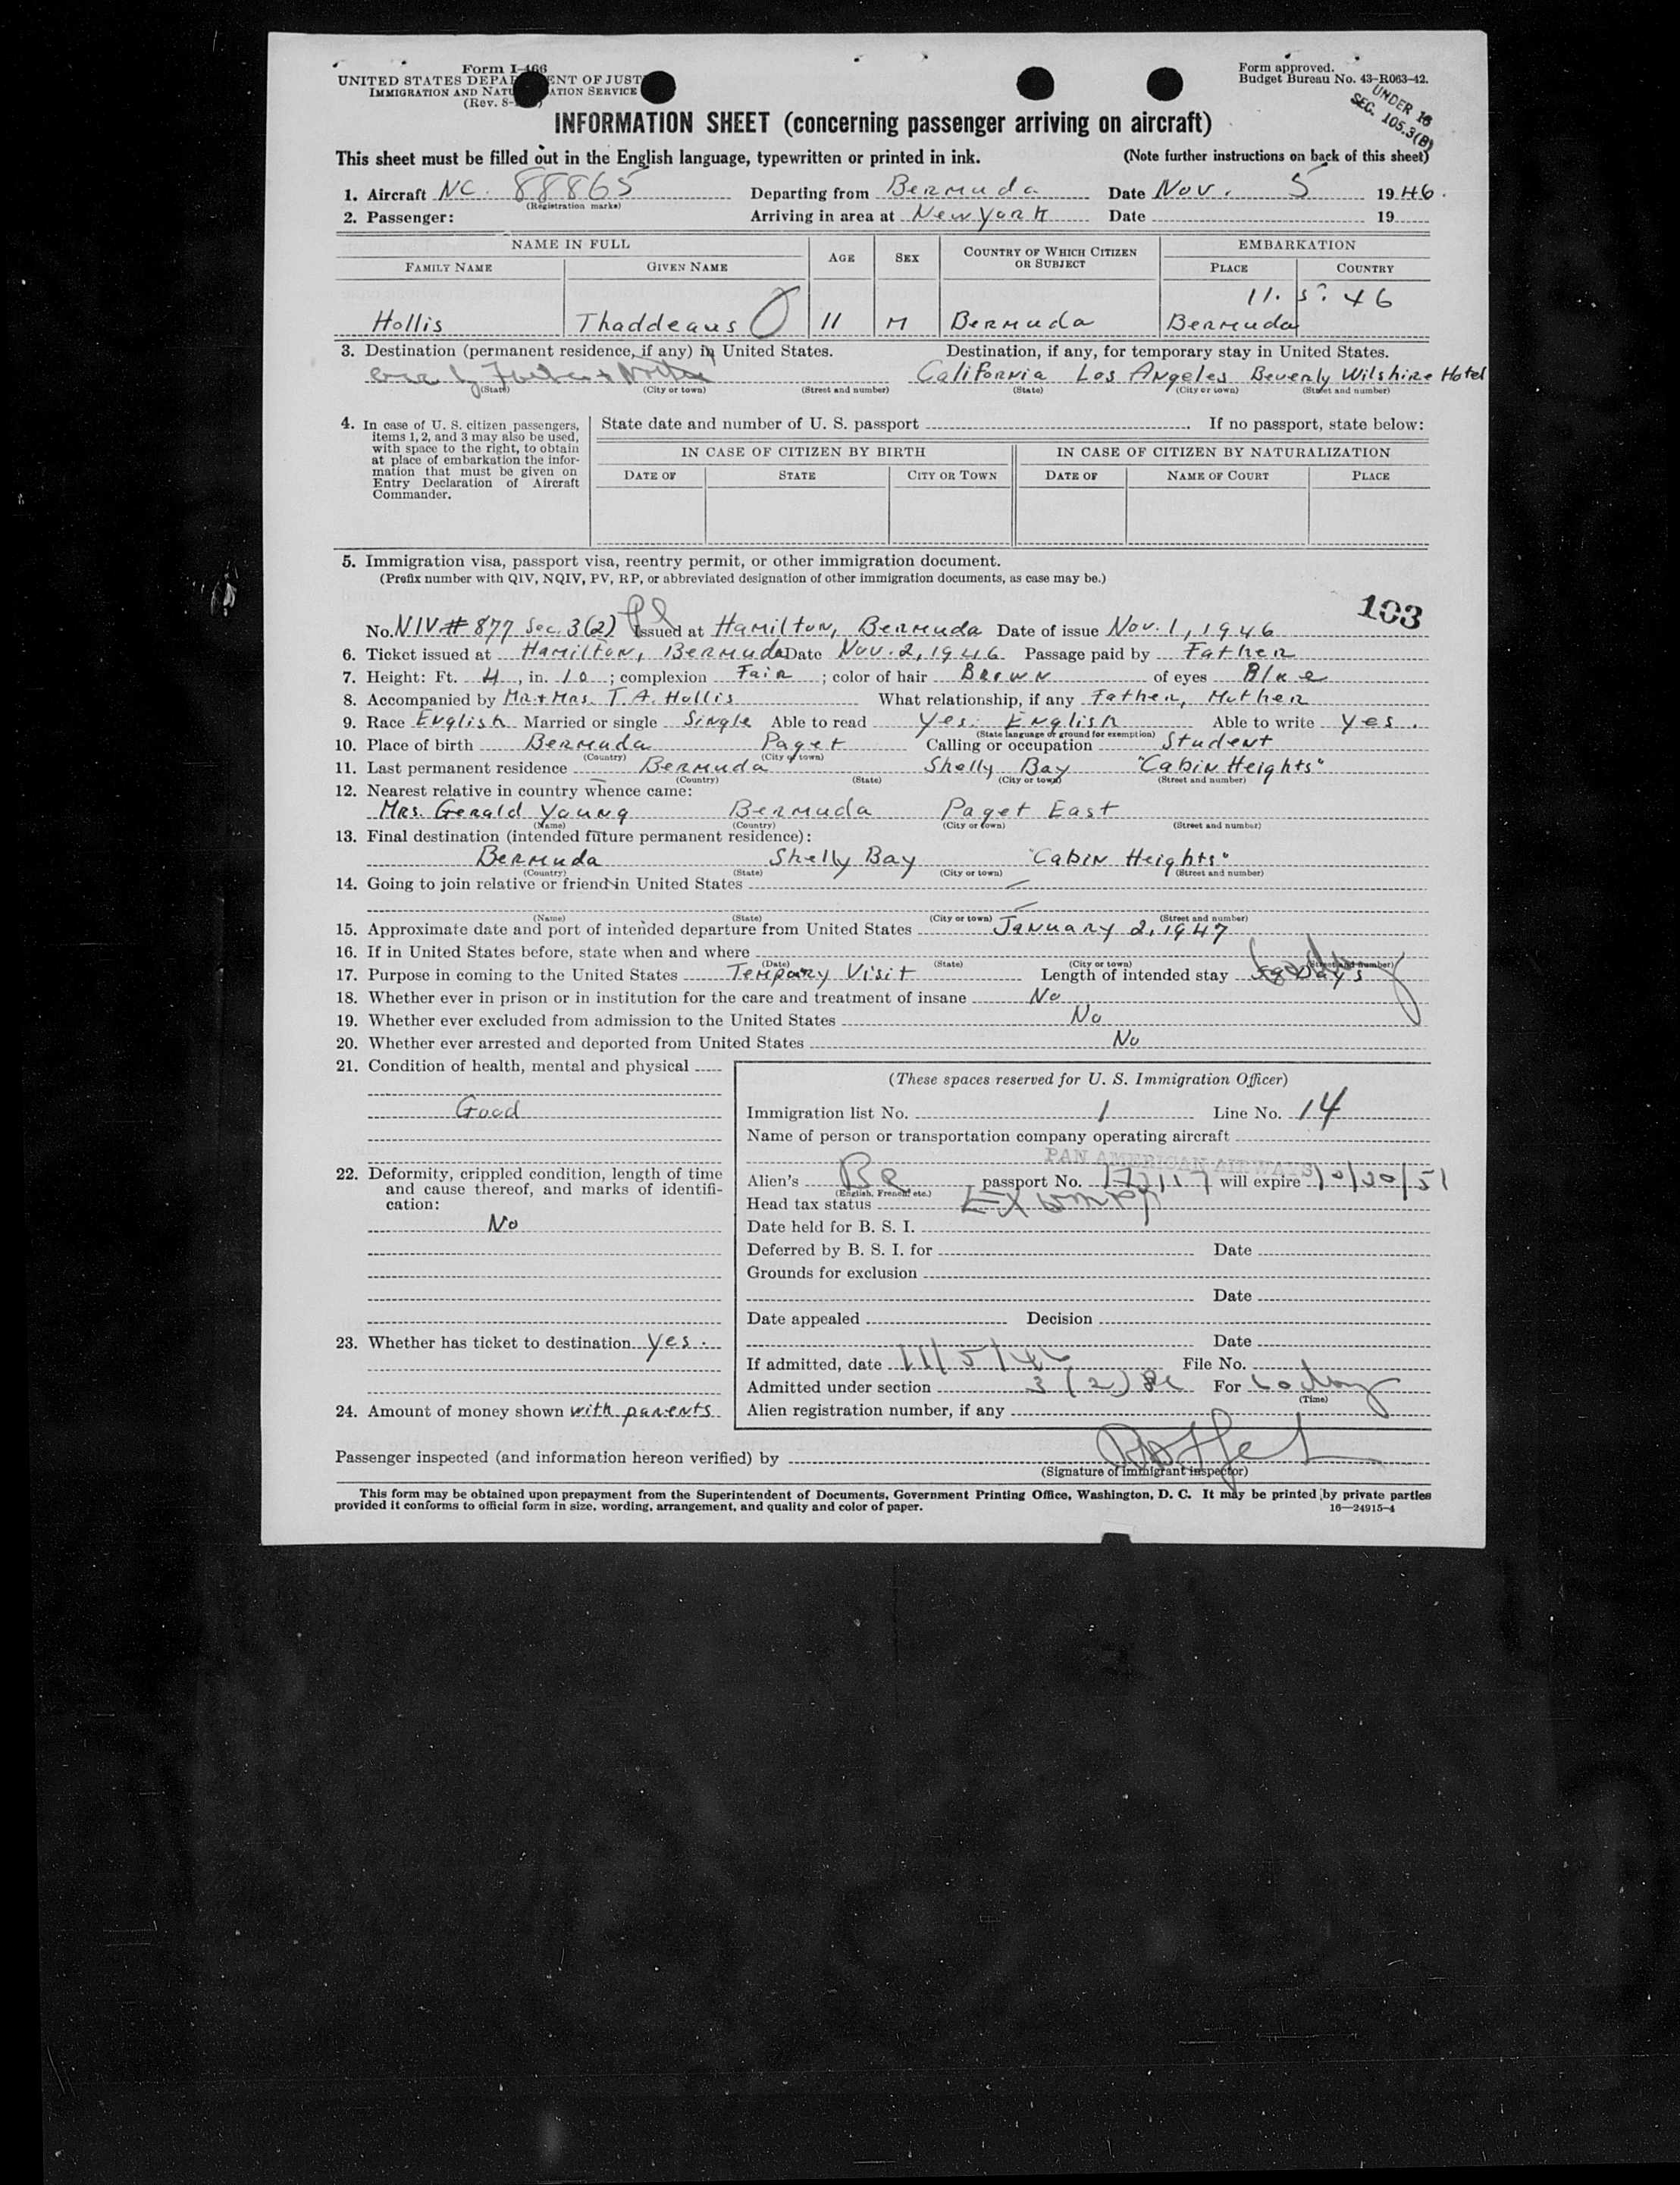 Form I-466
UNITED STATES DEPARTMENT OF JUSTICE
IMMIGRATION AND NATURALIZATION SERVICE
(Rev. 8-
Form approved.
Budget Bureau No. 43-R063-42.
UNDER 16
SEC. 105.3(B)
INFORMATION SHEET (concerning passenger arriving on aircraft)
This sheet must be filled out in the English language, typewritten or printed in ink. (Note further instructions on back of this sheet)
1. Aircraft NC. 88865 Departing from Bermuda Date Nov. 5 1946.
(Registration marks)
2. Passenger: Arriving in area at New York Date 19
NAME IN FULL AGE SEX COUNTRY OF WHICH CITIZEN OR SUBJECT EMBARKATION
FAMILY NAME GIVEN NAME PLACE COUNTRY
11. 5. 46
Hollis Thaddeaus 11 M Bermuda Bermuda
3. Destination (permanent residence, if any) in United States. Destination, if any, for temporary stay in United States.
California Los Angeles Beverly Wilshire Hotel
(State) (City or town) (Street and number) (State) (City or town) (Street and number)
4. In case of U. S. citizen passengers, items 1, 2, and 3 may also be used, with space to the right, to obtain at place of embarkation the information that must be given on Entry Declaration of Aircraft Commander.
State date and number of U. S. passport . If no passport, state below:
IN CASE OF CITIZEN BY BIRTH IN CASE OF CITIZEN BY NATURALIZATION
DATE OF STATE CITY OR TOWN DATE OF NAME OF COURT PLACE
5. Immigration visa, passport visa, reentry permit, or other immigration document.
(Prefix number with QIV, NQIV, PV, RP, or abbreviated designation of other immigration documents, as case may be.)
103
No. NIV # 877 Sec. 3(2) Issued at Hamilton, Bermuda Date of issue Nov. 1, 1946
6. Ticket issued at Hamilton, Bermuda Date Nov. 2, 1946 Passage paid by Father
7. Height: Ft. 4, in. 10; complexion Fair; color of hair Brown of eyes Blue
8. Accompanied by Mr. + Mrs. T. A. Hollis What relationship, if any Father, Mother
9. Race English Married or single Single Able to read Yes. English Able to write Yes.
(State language or ground for exemption)
10. Place of birth Bermuda Paget Calling or occupation Student
(Country) (City or town)
11. Last permanent residence Bermuda Shelly Bay "Cabin Heights"
(Country) (State) (City or town) (Street and number)
12. Nearest relative in country whence came:
Mrs. Gerald Young Bermuda Paget East
(Name) (Country) (City or town) (Street and number)
13. Final destination (intended future permanent residence):
Bermuda Shelly Bay "Cabin Heights"
(Country) (State) (City or town) (Street and number)
14. Going to join relative or friend in United States
(Name) (State) (City or town) (Street and number)
15. Approximate date and port of intended departure from United States January 2, 1947
16. If in United States before, state when and where
(Date) (State) (City or town) (Street and number)
17. Purpose in coming to the United States Tempory Visit Length of intended stay Days
18. Whether ever in prison or in institution for the care and treatment of insane No
19. Whether ever excluded from admission to the United States No
20. Whether ever arrested and deported from United States No
21. Condition of health, mental and physical
Good
22. Deformity, crippled condition, length of time and cause thereof, and marks of identification:
No
23. Whether has ticket to destination Yes.
24. Amount of money shown with parents
(These spaces reserved for U. S. Immigration Officer)
Immigration list No. 1 Line No. 14
Name of person or transportation company operating aircraft
PAN AMERICAN AIRWAYS
Alien's BR passport No. will expire 10/30/51
(English, French, etc.)
Head tax status Exempt
Date held for B. S. I.
Deferred by B. S. I. for Date
Grounds for exclusion
Date
Date appealed Decision
Date
If admitted, date 11/5/46 File No.
Admitted under section 3(2) For 60 days
(Time)
Alien registration number, if any
Passenger inspected (and information hereon verified) by
(Signature of immigrant inspector)
This form may be obtained upon prepayment from the Superintendent of Documents, Government Printing Office, Washington, D. C. It may be printed by private parties
provided it conforms to official form in size, wording, arrangement, and quality and color of paper. 16—24915-4